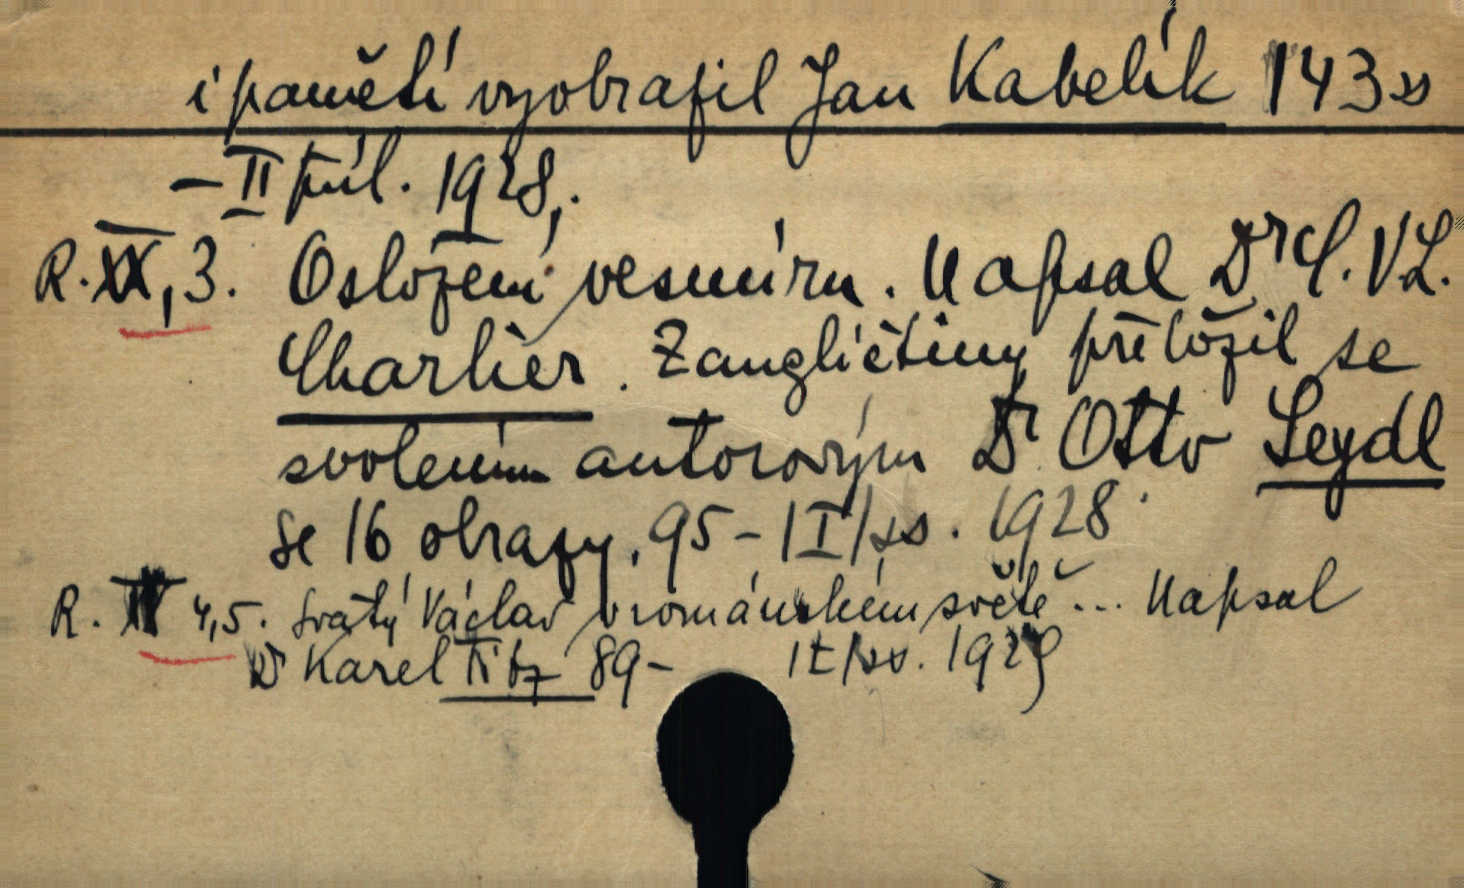 i pamětí vyobrazil Jan Kabelík 143 ss
– II příl. 1928,.
R. XX, 3. O složení vesmíru. Napsal Dr C. V. L.
Charlier. Z angličtiny přeložil se
svolením autorovým Dr Otto Seydl
se 16 obrazy. 95 – |I| ss. 1928.
R. 4,5. Svatý Václav v románském světě... Napsal
Dr Karel Titz 89 – ss. 1929